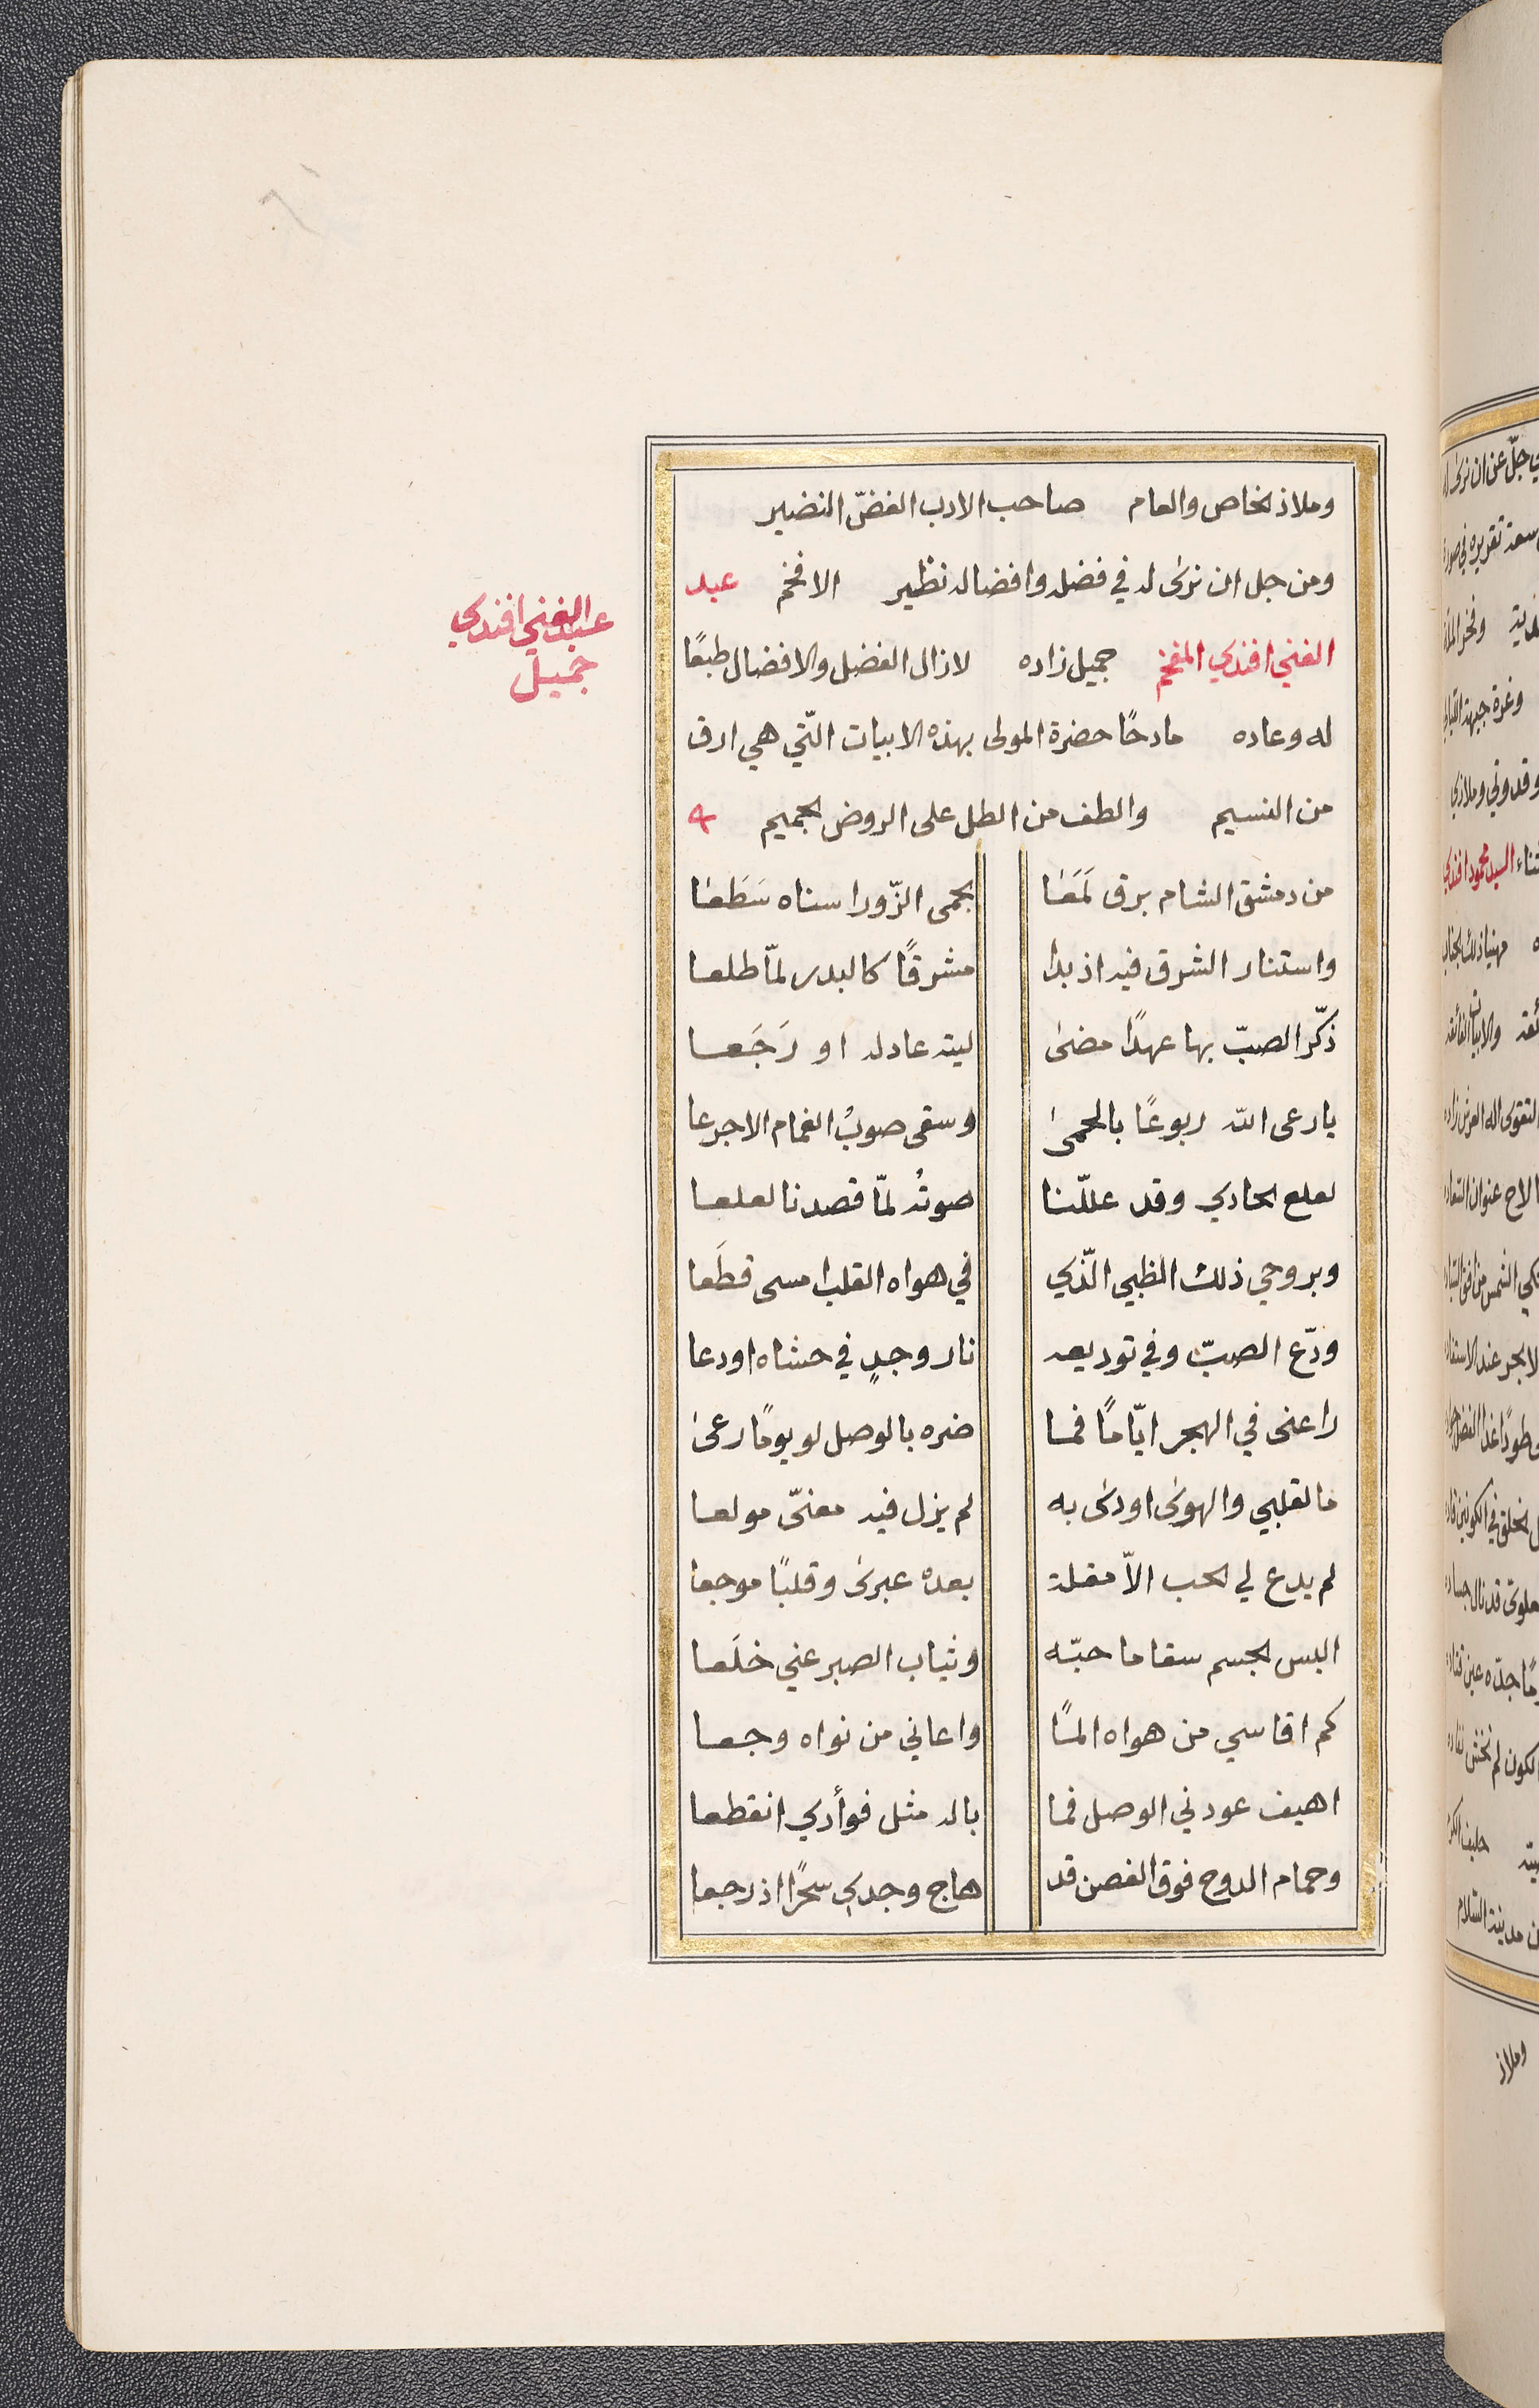 وملاذ الخاص والعام صاحب الادب الغضّ النضير
ومن جل ان نرى له في فضله وافضاله نظير الافخم عبد
الغني افندي المفخم جميل زاده لا زال الفضل والافضال طبعًا
له وعاده مادحًا حضرة المولى بهذه الابيات الّتي هي ارق
من النسيم والطف من الطل على الروض الجميم
من دمشق الشام برق لَمَعَا بحمى الزّورا سناه سَطَعَا
واستنار الشرق فيه اذ بدا مشرقًا كالبدر لمّا طلعا
ذكّر الصبّ بها عهدًا مضى ليته عاد له او رَجَعا
يا رعى الله ربوعًا بالحمى وسقى صوبُ الغمام الاجرعا
لعلع الحادي وقد عللّنا صوتُه لمّا قصدنا لعلعا
وبروحي ذلك الظبي الّذي في هواه القلب امسى قطَعا
ودّع الصبّ وفي توديعه نار وجدٍ في حشاه اودعا
راعنى في الهجر ايّامًا فما ضره بالوصل لو يومًا رعى
ما لقلبي والهوى اودى به لم يزل فيه معنّى مولعا
لم يدع لي الحب الاّ مقلة بعده عبرى وقلبًا موجعا
البس الجسم سقاما حبّه وثياب الصبر عني خلَعا
كم اقاسي من هواه المًا واعاني من نواه وجعا
اهيف عودني الوصل فما باله مثل فوأدي انقطعا
وحمام الدوح فوق الغصن قد هاج وجدي سحرًا اذ رجعا
عبد الغني افندي
جميل
السيد محمود افندي
وملاذ